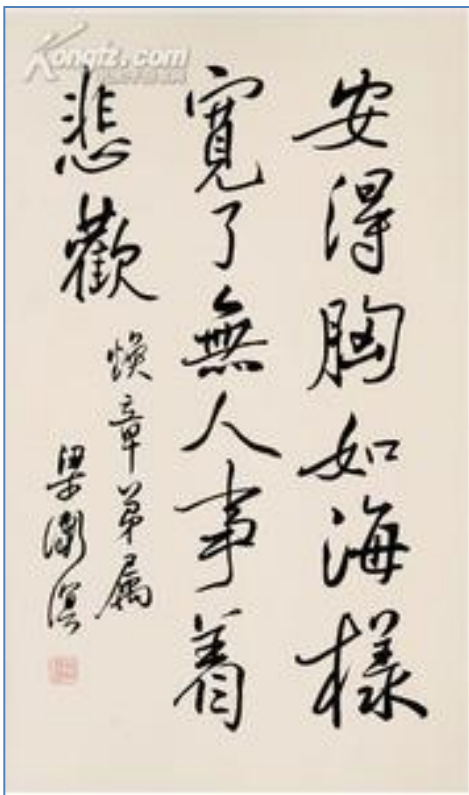 Kongfz.com
安得胸如海樣
寬了無人事着
悲歡
煥章弟属
梁漱溟